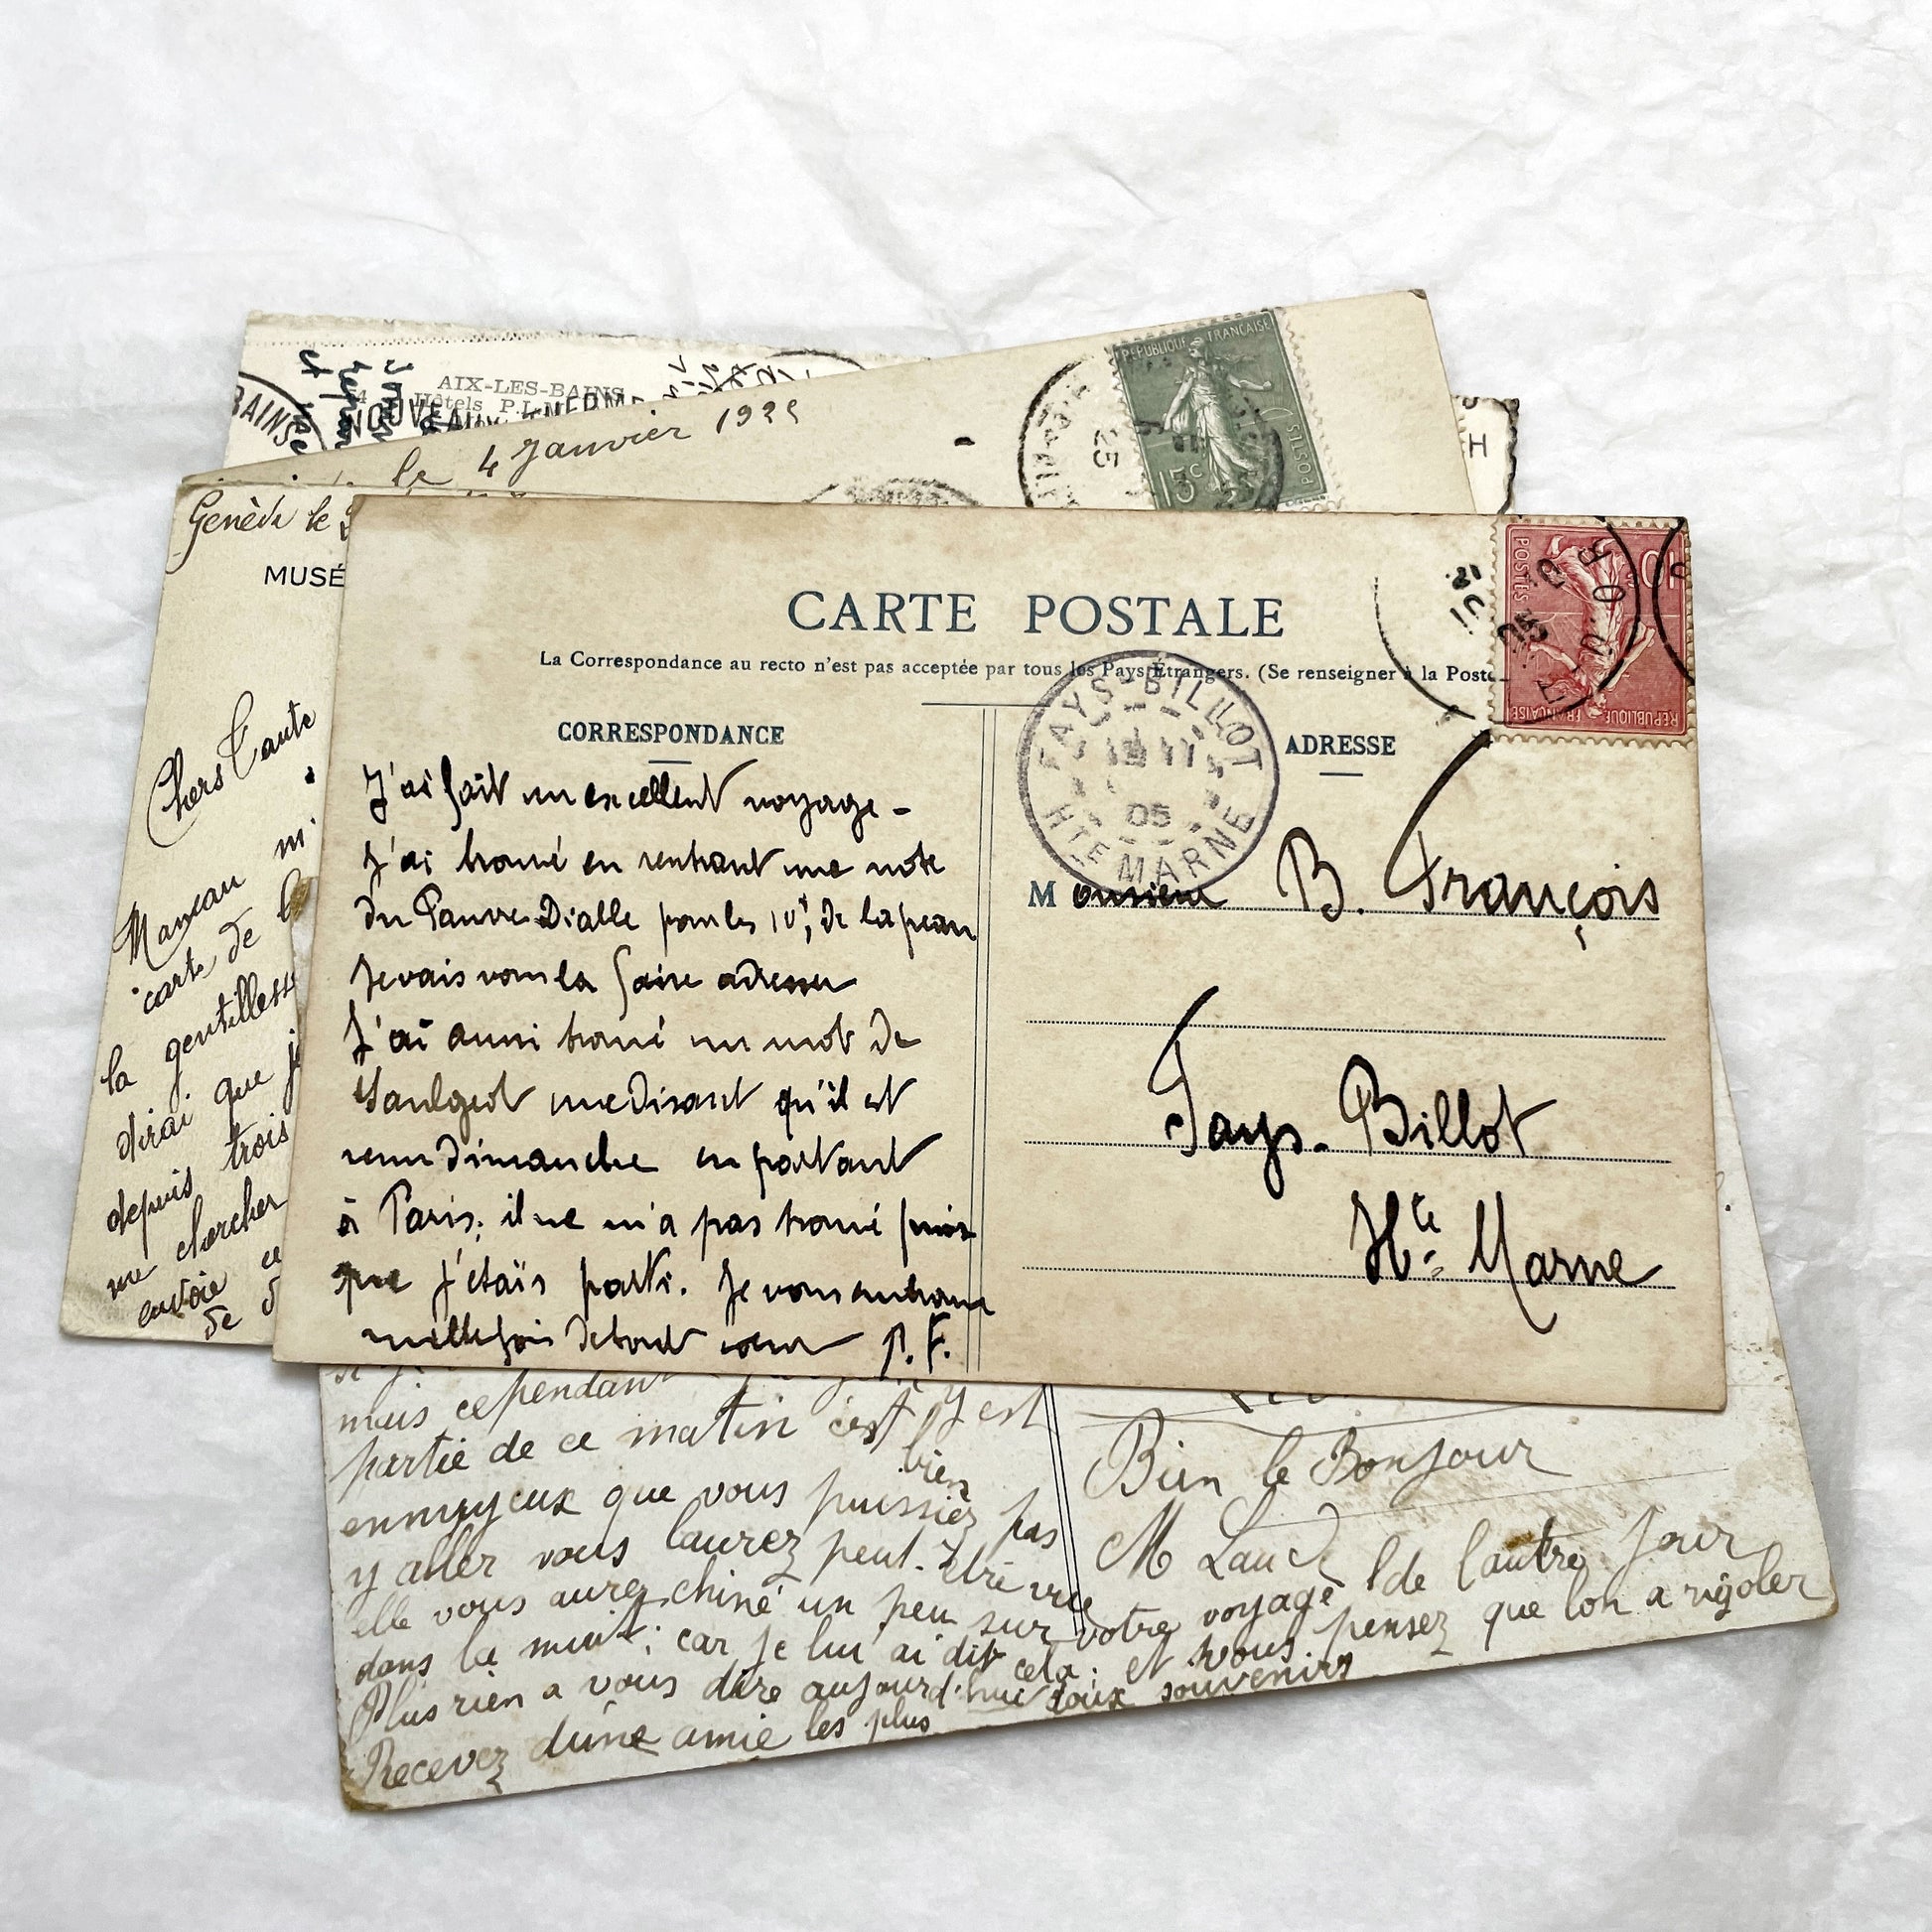 AIX-LES-BAINS
Hôtels P.L.M.
BAINS
NOUVEAUX THERM
le 4 Janvier 1925
25
REPUBLIQUE FRANÇAISE
15c
POSTES
H
Genève le
MUSÉ
Chers Tante
Maman
carte de
la gentillesse
dirai que j
depuis trois
me chercher
envoie ce
de
CARTE POSTALE
La Correspondance au recto n'est pas acceptée par tous les Pays Étrangers. (Se renseigner à la Poste
CORRESPONDANCE
J'ai fait un excellent voyage -
J'ai trouvé en rentrant une note
du Pauvre Dialle pour les 10f, de la peau
Je vais vous la faire adresser
J'ai aussi trouvé un mot de
Saulgeot me disant qu'il est
venu dimanche en partant
à Paris; il ne m'a pas trouvé puis
que j'étais parti. Je vous embrasse
mille fois de tout cœur P. F.
ADRESSE
FAYS-BILLOT
05
HTE MARNE
10
POSTES
REPUBLIQUE FRANÇAISE
Monsieur B. François
Fays-Billot
Hte Marne
mais cependant
partie de ce matin c'est
y est
bien
ennuyeux que vous puissiez pas
y aller vous laurez peut-etre vue
elle vous aurez chiné un peu sur votre voyage de l'autre jour
dans la nuit; car je lui ai dit cela; et vous pensez que lon a rigoler
Plus rien a vous dire aujourd'hui
Recevez dune amie les plus doux souvenirs
Bien le Bonjour
M